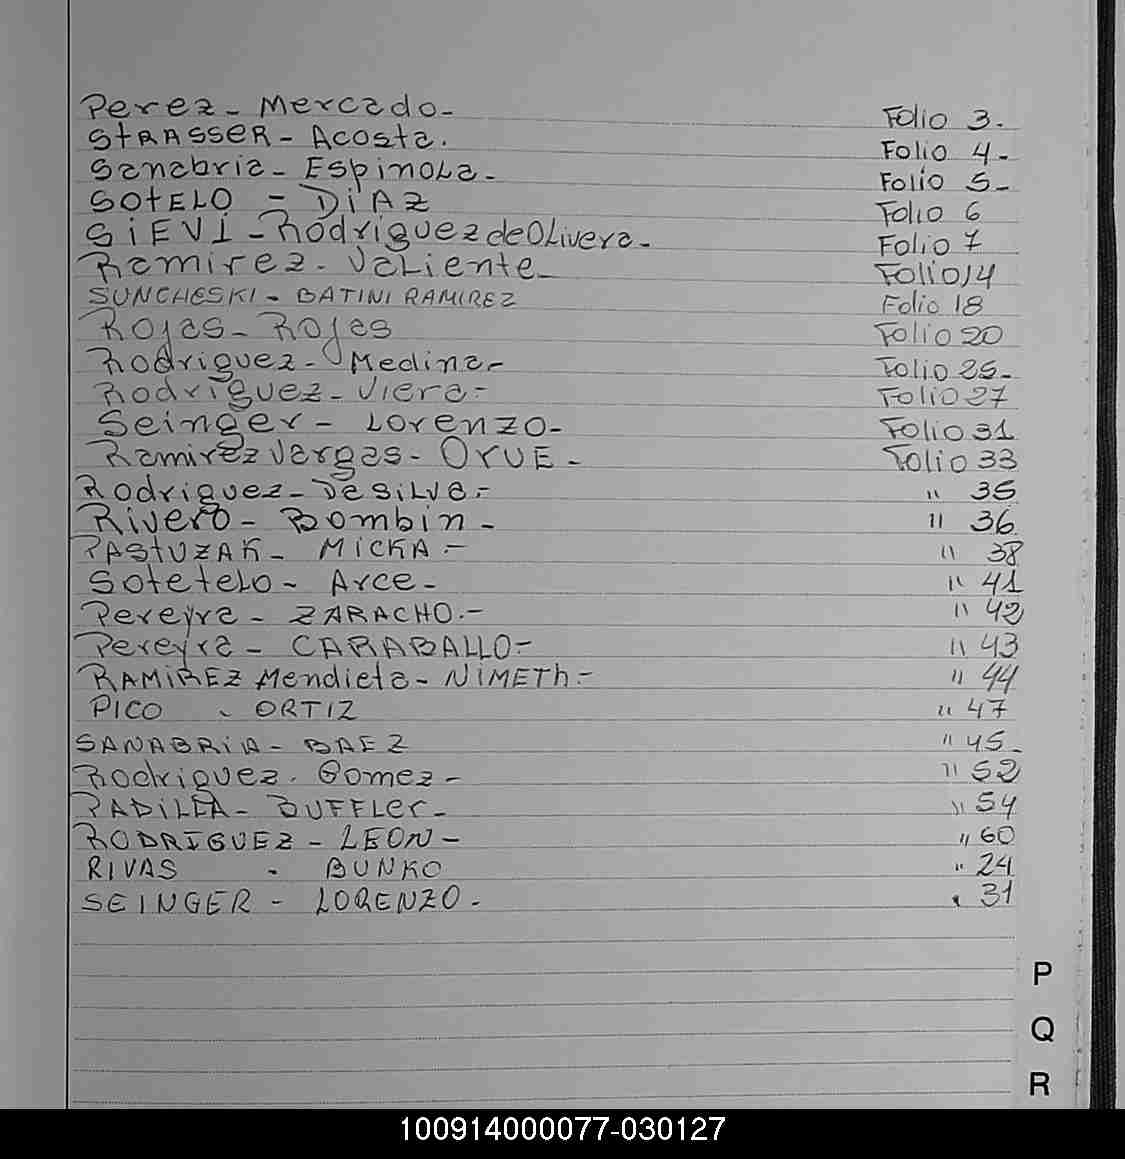 Perez - Mercado - Folio 3.
StRASSER - Acosta. Folio 4 -
Sanabria - Espinola - Folio 5 -
SOtELO - DiAZ Folio 6
SiEVI - Rodriguez de Olivera - Folio 7
Ramirez - Valiente - Folio 14
SUNCHESKI - BATINI RAMIREZ Folio 18
Rojas - Rojas Folio 20
Rodriguez - Medina - Folio 25 -
Rodriguez - Viera - Folio 27
Seinger - Lorenzo - Folio 31
Ramirez Vargas - ORUE - Folio 33
Rodriguez - De Silva - " 35
Rivero - Bombin - " 36
PAStUZAK - MiCKA - " 38
Sotetelo - Arce - " 41
Pereyra - ZARACHO. - " 42
Pereyra - CARABALLO - " 43
RAMiREZ Mendieta - NiMETH - " 44
PICO - ORTIZ " 47
SANABRiA - BAEZ " 45 -
Rodriguez - Gomez - " 52
PADiLLA - BUFFLer - " 54
RODRIGUEZ - LEON - " 60
RIVAS - BUNKO " 24
SEINGER - LORENZO - " 31
P
Q
R
100914000077-030127